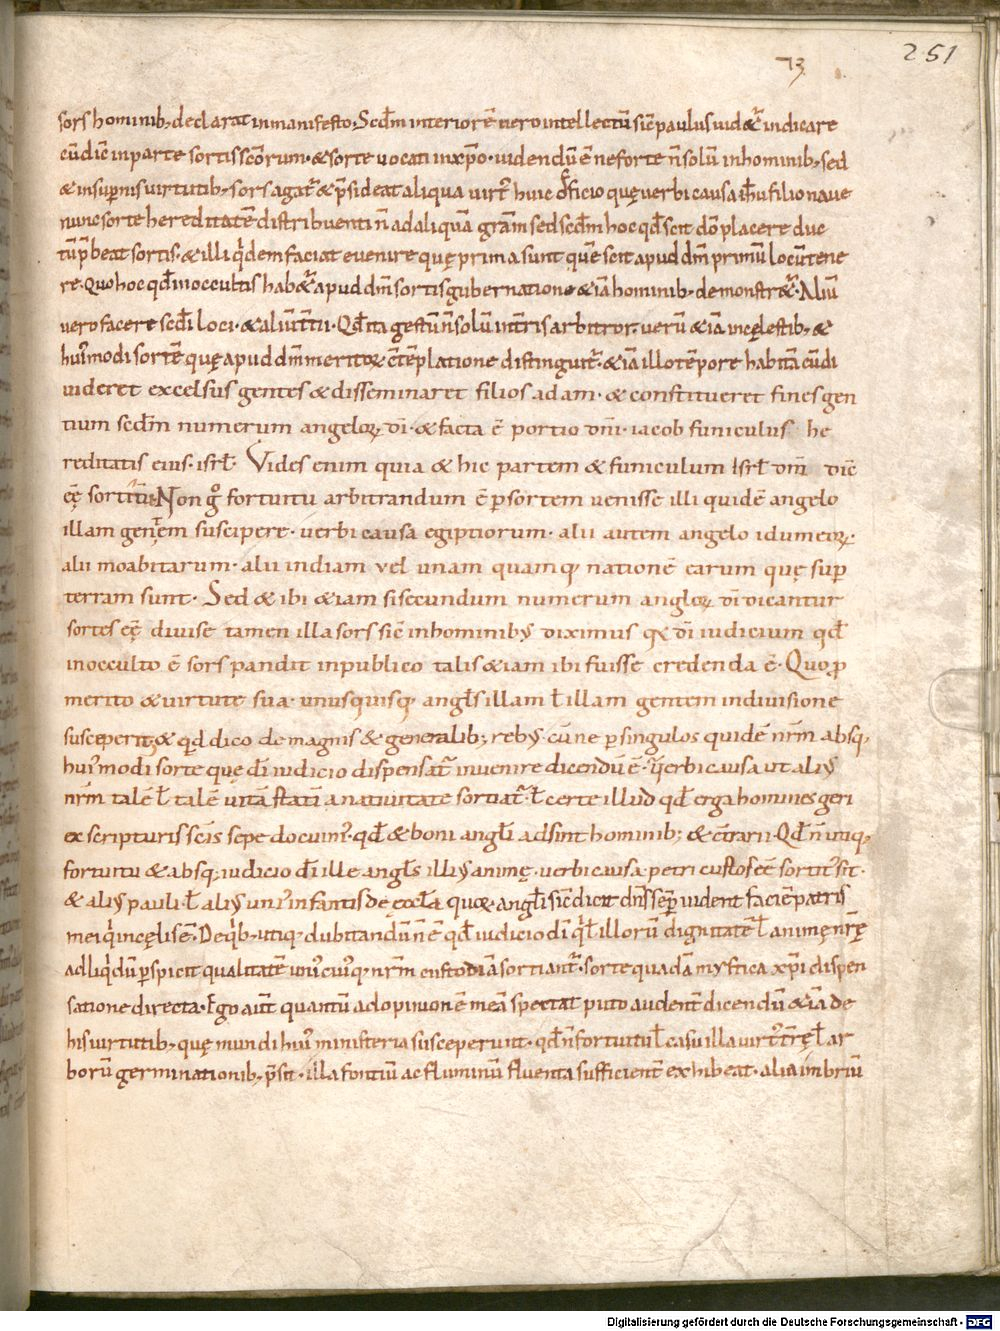 251
73
sors hominib; declarat in manifesto. Scdm interiorē uero intellectū sic̄ paulus uidet᷑ indicare
cū dic̄ in parte sortis scōrum · & sorte uocati in xp̄o · uidendū ē ne forte n̄ solū in hominib; sed
& in sup̄nis uirtutib; sors agat᷑ & p̄sideat aliqua uirt᷒ huic officio quę uerbi causa ih̄u filio naue
nunc sorte hereditatē distribuenti n̄ ad aliquā gr̄am sed scdm hoc qd̄ scit dō placere duc
tū p̄beat sortis · & illi q̇dem faciat euenire quę prima sunt quē scit apud dm̄ primū locū tene
re · Quo hoc qd̄ in occultis habet᷑ apud dm̄ sortis gubernatione &iā hominib; demonstret᷑ · Aliū
uero facere scd̄i loci · & aliū t̄tii · Qd̄ ita gestū n̄ solū in t̄ris arbitror · uerū &iā in cęlestib; &
hui᷒modi sortē quę apud dm̄ meritoꝝ c̄tēplatione distinguit᷑ · &iā illo tēpore habitā cū di
uideret excelsus gentes & disseminaret filios adam · & constitueret fines gen
tium scdm numerum angeloꝝ dī · & facta ē portio dn̄i · iacob funiculus he
reditatis eius · isrl̄ · Vides enim quia & hic partem & funiculum Isrl̄ dn̄i dic̄
eę̄ sortitū · Non g͛ fortuitu arbitrandum ē p̱ sortem uenisse illi quidē angelo
illam gentem suscipere · uerbi causa egiptiorum · alii autem angelo idumeoꝝ ·
alii moabitarum · alii indiam vel unam quamq; nationē earum quę sup̄
terram sunt · Sed & ibi &iam si secundum numerum angloꝝ dī dicantur
sortes eę̄ diuise tamen illa sors sic̄ in hominib᷒ diximus qꝫ dī iudicium qd̄
in occulto ē sors pandit in publico talis &iam ibi fuisse credenda ē · Quo p̱
merito & uirtute sua · unusquisq; angl̄s illam ł illam gentem in diuisione
susceperit; & qd dico de magnis & generalib; reb᷒ cū ne p̱ singulos quidē nr̄m absq;
hui᷒modi sorte quę dī iudicio dispensat᷑ inuenire dicendū ē · Verbi causa ut ali᷒
nr̄m talē ł talē uitā statī a natiuitate sortiat᷑ · ł certe illud qd̄ erga homines geri
ex scripturis sc̄is sepe docuim᷒ · qd̄ & boni angl̄i adsint hominib; & c̄trarii · Qd̄ n̄ utiq;
fortuitu & absq; iudicio dī ille angl̄s illi᷒ animę · uerbi causa petri custos eē̄ sortit᷒ sit ·
& ali᷒ pauli ł ali᷒ uni᷒ infantis de ęccl̄a quoꝝ angl̄i sic̄ dicit dn̄s sēp̱ uident faciē patris
mei q̇ in cęlis ē · De q̇b; utiq; dubitandū n̄ ē qd̄ iudicio dī q̇ ł illorū dignitatē ł animę nr̄ę
ad liq̇dū p̱spicit qualitatē uni᷒cui᷒q; nr̄m custodiā sortiant᷑ · sorte quadā mystica xp̄i dispen
satione directa · Ego aūt quantū ad opinionē meā spectat puto audent᷑ dicendū &iā de
his uirtutib; quę mundi hui᷒ ministeria susceperunt · qd̄ n̄ fortuitu ł casu illa uirt᷒ t̄rę ł ar
borū germinationib; p̄sit · illa fontiū ac fluminū fluenta sufficient᷑ exhibeat · alia imbriū
Digitalisierung gefördert durch die Deutsche Forschungsgemeinschaft - DFG